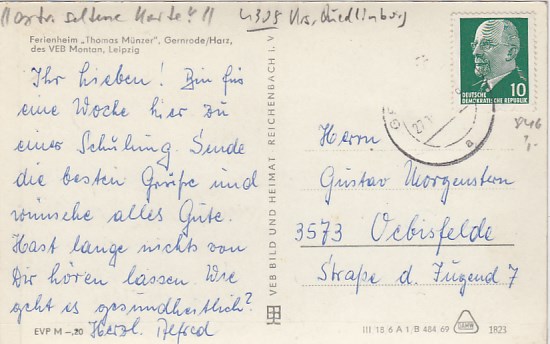 4305 Krs. Quedlinburg
Ferienheim „Thomas Münzer“, Gernrode/Harz,
des VEB Montan, Leipzig
Ihr Lieben! Bin für
eine Woche hier zu
einer Schulung. Sende
die besten Grüße und
wünsche alles Gute.
Hast lange nichts von
Dir hören lassen. Wie
geht es gesundheitlich?
Herzl. Alfred
EVP M –,20
VEB BILD UND HEIMAT REICHENBACH I. V.
10
DEUTSCHE
DEMOKRATISCHE REPUBLIK
Herrn
Gustav Morgenstern
3573 Oebisfelde
Straße d. Jugend 7
III 18 6 A 1 B 484 69
1823